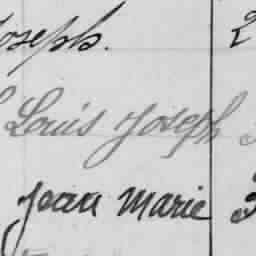 Joseph.
Louis Joseph
Jean Marie